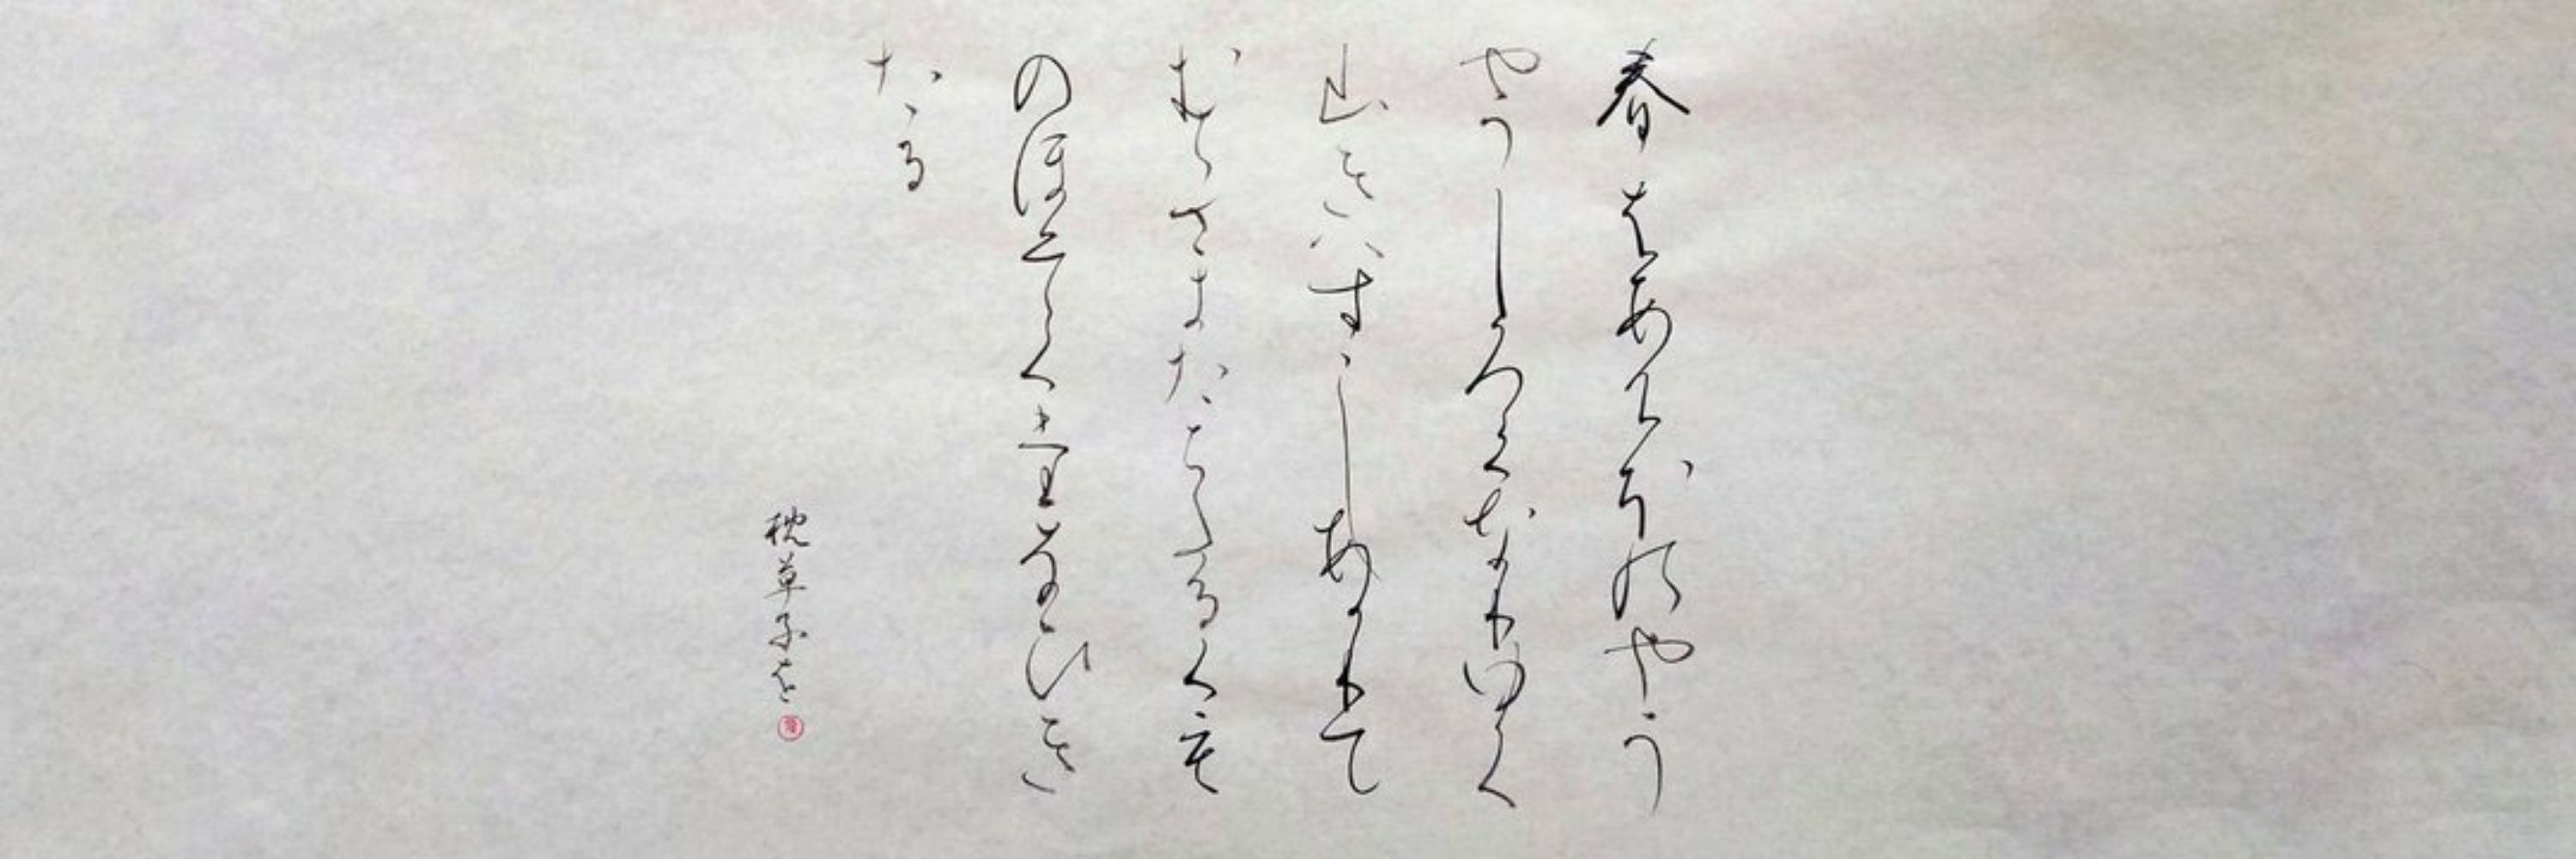 春はあけほのやう
やうしろくなりゆく
山きはすこしあかりて
むらさきたちたるくも
のほそくたなひき
たる
枕草子を